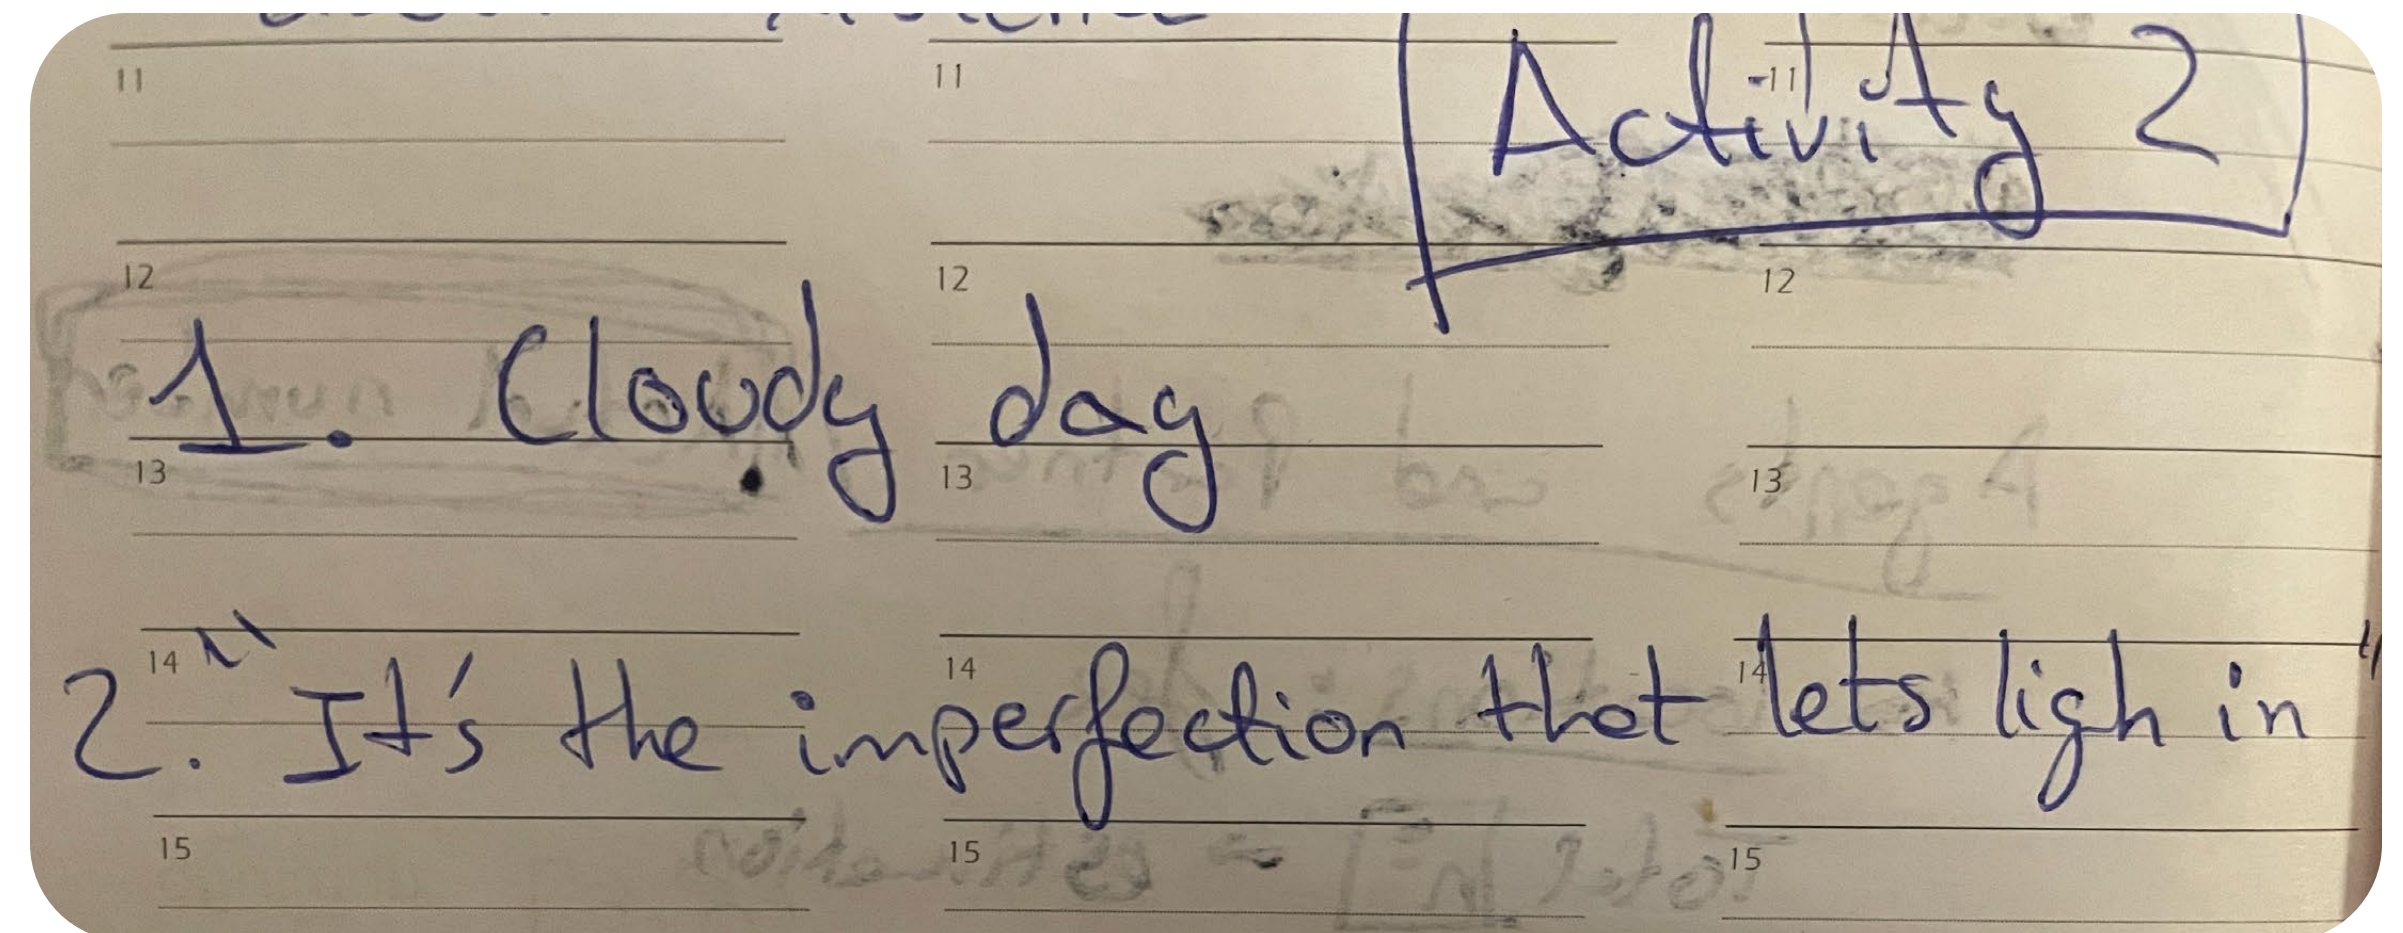 Activity 2
11 11 11
12 12 12
1. Cloudy day
13 13 13
14 14 14
2. "It's the imperfection that lets ligh in"
15 15 15